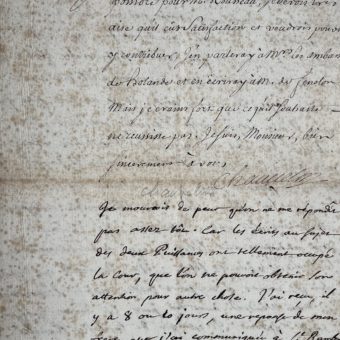 pour M. Rousseau, je serois tres
aise qu'il eut satisfaction et voudrois pouvoir
y contribuer, j'en parleray à Mrs les ambass
de holande et en ecriray à M. de fenelon
Mais je crains fort que ce qu'il souhaite
ne reussisse pas. Je suis, Monsieur, bien
sincerement à vous
Chauvelin
Je mourois de peur qu'on ne me repondît
pas assez tôt: Car les au sujet
des deux Puissances ont tellement occupé
la Cour, que l'on ne pouvoit obtenir son
attention pour autre chose. J'ai reçu, il
y a 8 ou 10 jours, une reponse de mon
que j'ai communiquée à